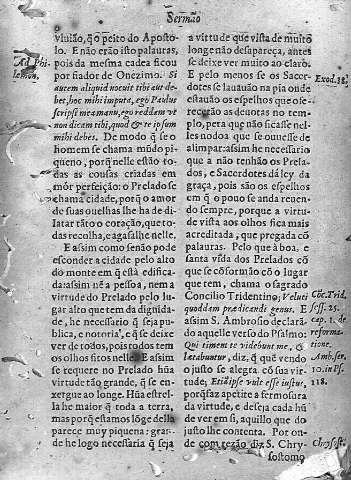 Sermão
viuião, q̃ o peito do Aposto-
lo. E não erão isto palauras,
Ad Phi-
lemon.
pois da mesma cadea ficou
por fiador de Onezimo. Si
autem aliquid nocuit tibi aut de-
bet, hoc mihi imputa, ego Paulus
scripsi mea manu, ego reddam vt
non dicam tibi, quod & te ipsum
mihi debes. De modo q̃ se o
homem se chama mũdo pi-
queno, porq̃ nelle estão to-
das as cousas criadas em
mór perfeição: o Prelado se
chama cidade, porq̃ o amor
de suas ouelhas lhe ha de di-
latar tãto o coração, que to-
das recolha, e agasalhe nelle.
E assim como senão pode
esconder a cidade pelo alto
do monte em q̃ está edifica-
da: assim nẽ a pessoa, nem a
virtude do Prelado pelo lu-
gar alto que tem da dignida-
de, he necessario q̃ seja pu-
blica, e notoria, e q̃ se deixe
ver de todos, pois todos tem
os olhos fitos nelle. E assim
se requere no Prelado hũa
virtude tão grande, q̃ se en-
xergue ao longe. Hũa estrel-
la he maior q̃ toda a terra,
mas porq̃ estamos lõge della
parece muy piquena: gran-
de he logo necessaria q̃ seja
a virtude que vista de muito
longe não desapareça, antes
se deixe ver muito ao claro.
E pelo menos se os Sacer-
Exod. 38.
dotes se lauauão na pia onde
estauão os espelhos que o se-
recerão as deuotas no tem-
plo, pera que não ficasse nel-
les nodoa que se ouuesse de
alimpar: assim he necessario
que a não tenhão os Prela-
dos, e Sacerdotes da ley da
graça, pois são os espelhos
em q̃ o pouo se anda reuen-
do sempre, porque a virtu-
de vista aos olhos fica mais
acreditada, que pregada cõ
palauras. Pelo que à boa, e
santa vida dos Prelados cõ
que se cõformão cõ o lugar
que tem, chama o sagrado
Concilio Tridentino, Veluti
Cõc. Trid.
quoddam prædicandi genus. E
sess. 25.
assim S. Ambrosio declarã-
cap. 1. de
do aquelle verso do Psalmo:
reforma-
tione.
Qui timent te videbunt me, &
lætabuntur, diz, q̃ quẽ vendo
Amb. ser.
o justo se alegra cõ sua vir-
10. in Ps.
tude; Etiã ipse vult esse iustus,
118.
porq̃ faz apetite a fermosura
da virtude, e deseja cada hũ
de ver em si, aquillo que do
justo lhe contenta. Por on-
de com rezão diz S. Chry-
chrysost.
sostomo